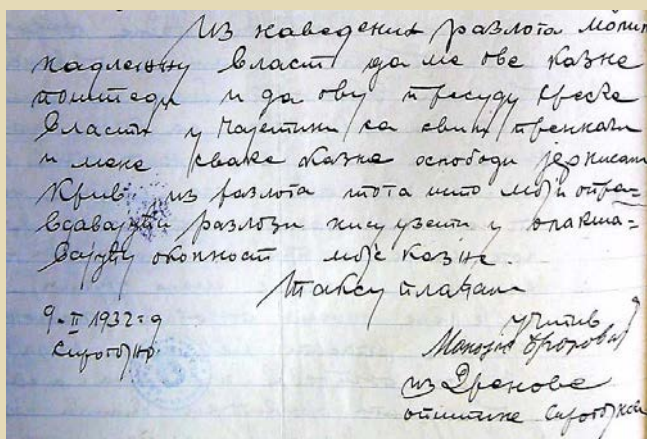 Из наведених разлога молим
надлежну власт да ме ове казне
поштеди и да ову пресуду Среске
власти у Чајетини са свим
и мене сваке казне ослободи јер нисам
Крив из разлога тога што моји опра-
вдавајући разлози нису узети у олакша=
вајућу околност моје казне.
Таксу плаћам
9-II 1932 г
Сирогојно.
учтив
из Дренове
општине Сирогојно